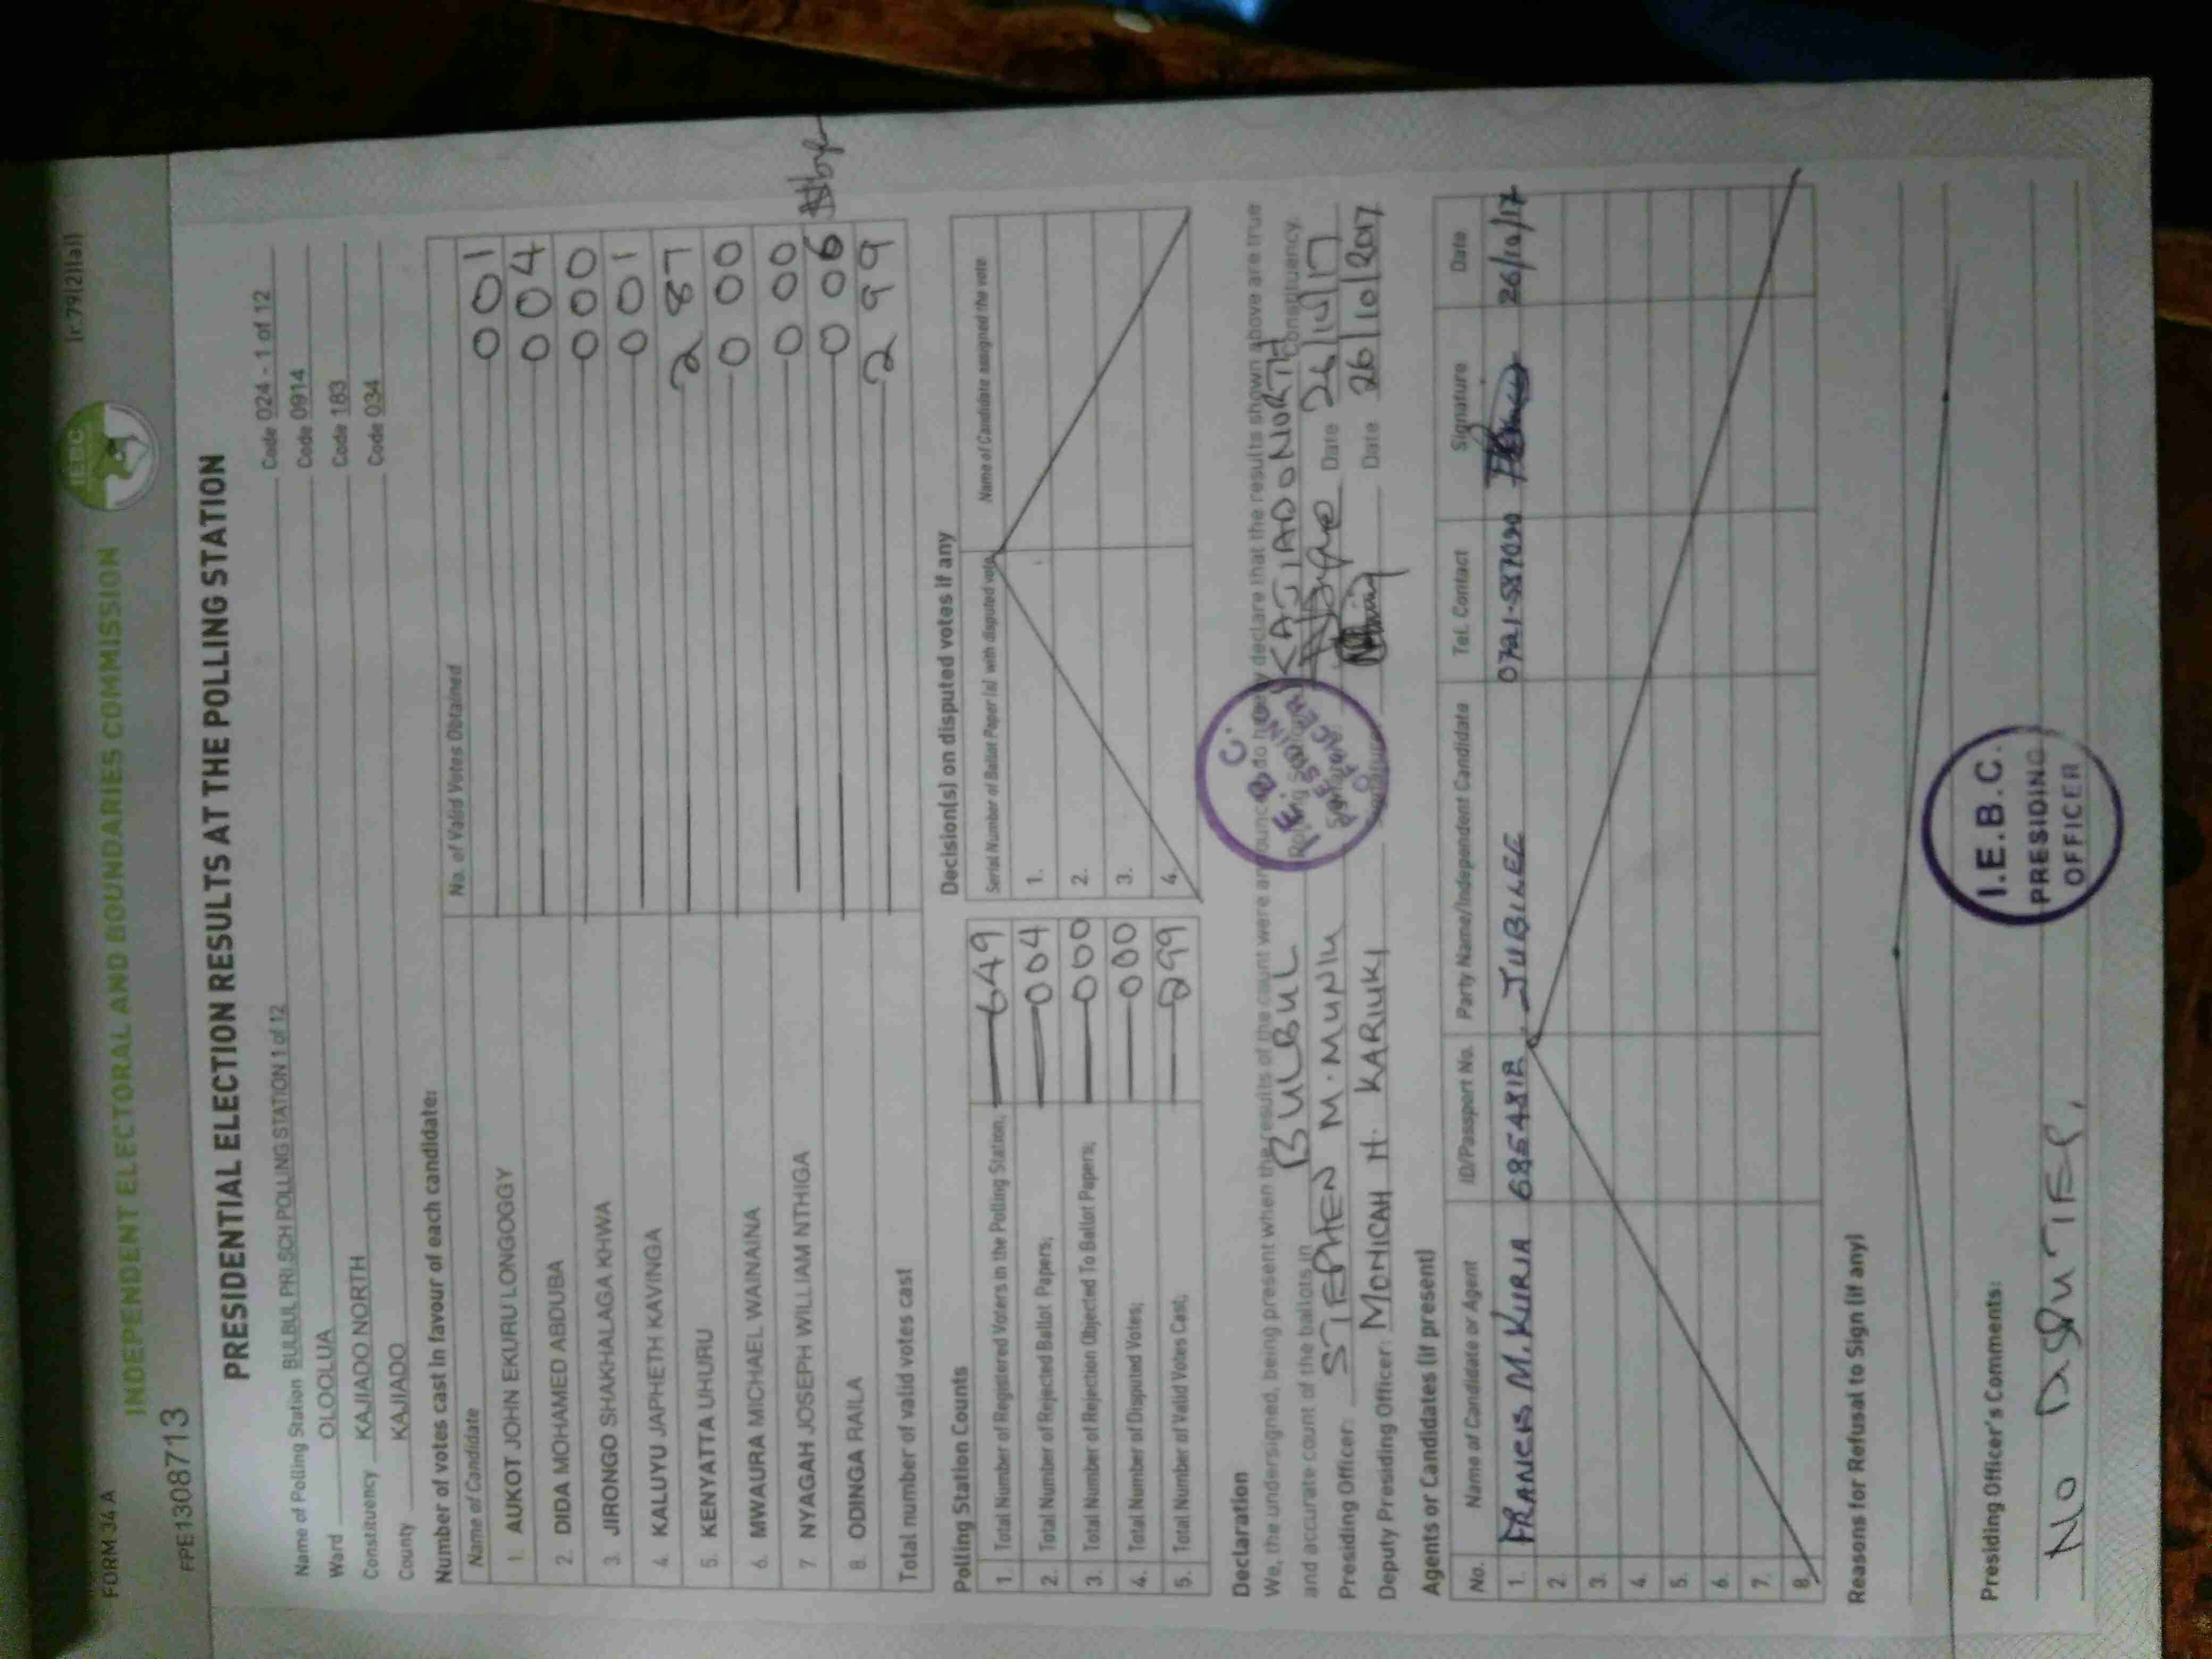 FORM 34 A
INDEPENDENT ELECTORAL AND BOUNDARIES COMMISSION
IEBC
(r. 79(2)(a))
FPE1308713
PRESIDENTIAL ELECTION RESULTS AT THE POLLING STATION
Name of Polling Station BULBUL PRI SCH POLLING STATION 1 of 12 Code 024 - 1 of 12
Ward OLOOLUA Code 0914
Constituency KAJIADO NORTH Code 183
County KAJIADO Code 034
Number of votes cast in favour of each candidate:
Name of Candidate No. of Valid Votes Obtained
1. AUKOT JOHN EKURU LONGOGGY 001
2. DIDA MOHAMED ABDUBA 004
3. JIRONGO SHAKHALAGA KHWA 000
4. KALUYU JAPHETH KAVINGA 001
5. KENYATTA UHURU 287
6. MWAURA MICHAEL WAINAINA 000
7. NYAGAH JOSEPH WILLIAM NTHIGA 000
8. ODINGA RAILA 006
Total number of valid votes cast 299
Polling Station Counts
1. Total Number of Registered Voters in the Polling Station; 649
2. Total Number of Rejected Ballot Papers; 004
3. Total Number of Rejection Objected To Ballot Papers; 000
4. Total Number of Disputed Votes; 000
5. Total Number of Valid Votes Cast; 299
Decision(s) on disputed votes if any
Serial Number of Ballot Paper (s) with disputed vote Name of Candidate assigned the vote
1.
2.
3.
4.
Declaration
We, the undersigned, being present when the results of the count were announced do hereby declare that the results shown above are true
and accurate count of the ballots in BULBUL Polling Station KAJIADO NORTH Constituency.
Presiding Officer: STEPHEN M. MUNIU Signature Date 26/10/17
Deputy Presiding Officer: MONICAH H. KARIUKI Signature Date 26/10/2017
I.E.B.C.
PRESIDING
OFFICER
Agents or Candidates (if present)
No. Name of Candidate or Agent ID/Passport No. Party Name/Independent Candidate Tel. Contact Signature Date
1. FRANCIS M. KURIA JUBILEE 26/10/17
2.
3.
4.
5.
6.
7.
8.
Reasons for Refusal to Sign (if any)
Presiding Officer's Comments:
NO DISPUTED.
I.E.B.C.
PRESIDING
OFFICER